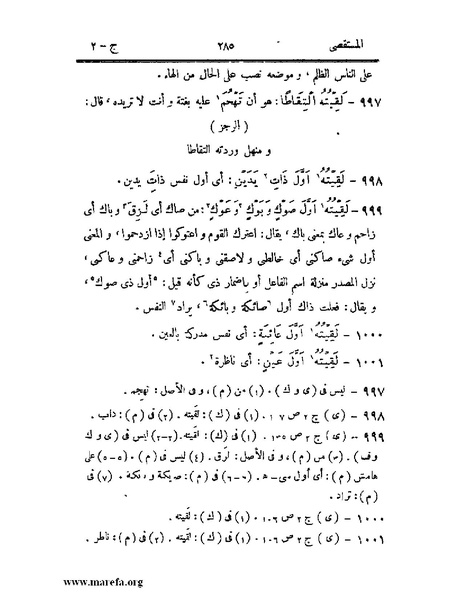 المستقصى ٢٨٥ ج – ٢
على الناس الظلم، وموضعه نصب على الحال من الهاء.
٩٩٧ – لَقِيْتُهُ الْتِقَاطًا: هو أن تَهْجُمَ١ عليه بغتة وأنت لا تريده، قال:
( الرجز )
و منهل وردته التقاطا
٩٩٨ – لَقِيْتُهُ١ اَوَّلَ ذَاتِ٢ يَدَيْنِ: أى أول نفس ذات يدين.
٩٩٩ – لَقِيْتُهُ١ اَوَّلَ صَوْكٍ وَ بَوْكٍ٢ وَعَوْكٍ٢: من صاك أى لزق٣ و باك أى
زاحم و عاك بمعنى باك، يقال: اعترك القوم و اعتوكوا إذا ازدحموا، و المعنى
أول شىء صاكنى أى خالطنى و لاصقنى و باكنى أى٤ زاحمنى و عاكنى،
نزل المصدر منزلة اسم الفاعل أو باضمار ذى كأنه قيل: ٥أول ذى صوك٥،
و يقال: فعلت ذاك أول ٦صائكة و بائكة٦، يراد٧ النفس.
١٠٠٠ – لَقِيْتُهُ١ اَوَّلَ عَائِنَةٍ: أى نفس مدركة بالعين.
١٠٠١ – لَقِيْتُهُ١ اَوَّلَ عَيْنٍ: أى ناظرة٢.
٩٩٧ – ليس فى (ى و ك). (١) من (م)، و فى الأصل: نهجمه.
٩٩٨ – (ى) ج ٢ ص ١٠٧. (١) فى (ك): لقيته. (٢) فى (م): ذاب.
٩٩٩ – (ى) ج ٢ ص . (١) فى (ك): لقيته. (٢–٢) ليس فى (ى و ك
و ف). (٣) من (م)، و فى الأصل: لرق. (٤) ليس فى (م). (٥–٥) على
هامش (م): أى أول . (٦–٦) فى (م): صيكة و . (٧) فى
(م): تراد.
١٠٠٠ – (ى) ج ٢ ص ١٠٦. (١) فى (ك): لقيته.
١٠٠١ – (ى) ج ٢ ص ١٠٦. (١) فى (ك): لقيته. (٢) فى (م): ناظر.
www.marefa.org